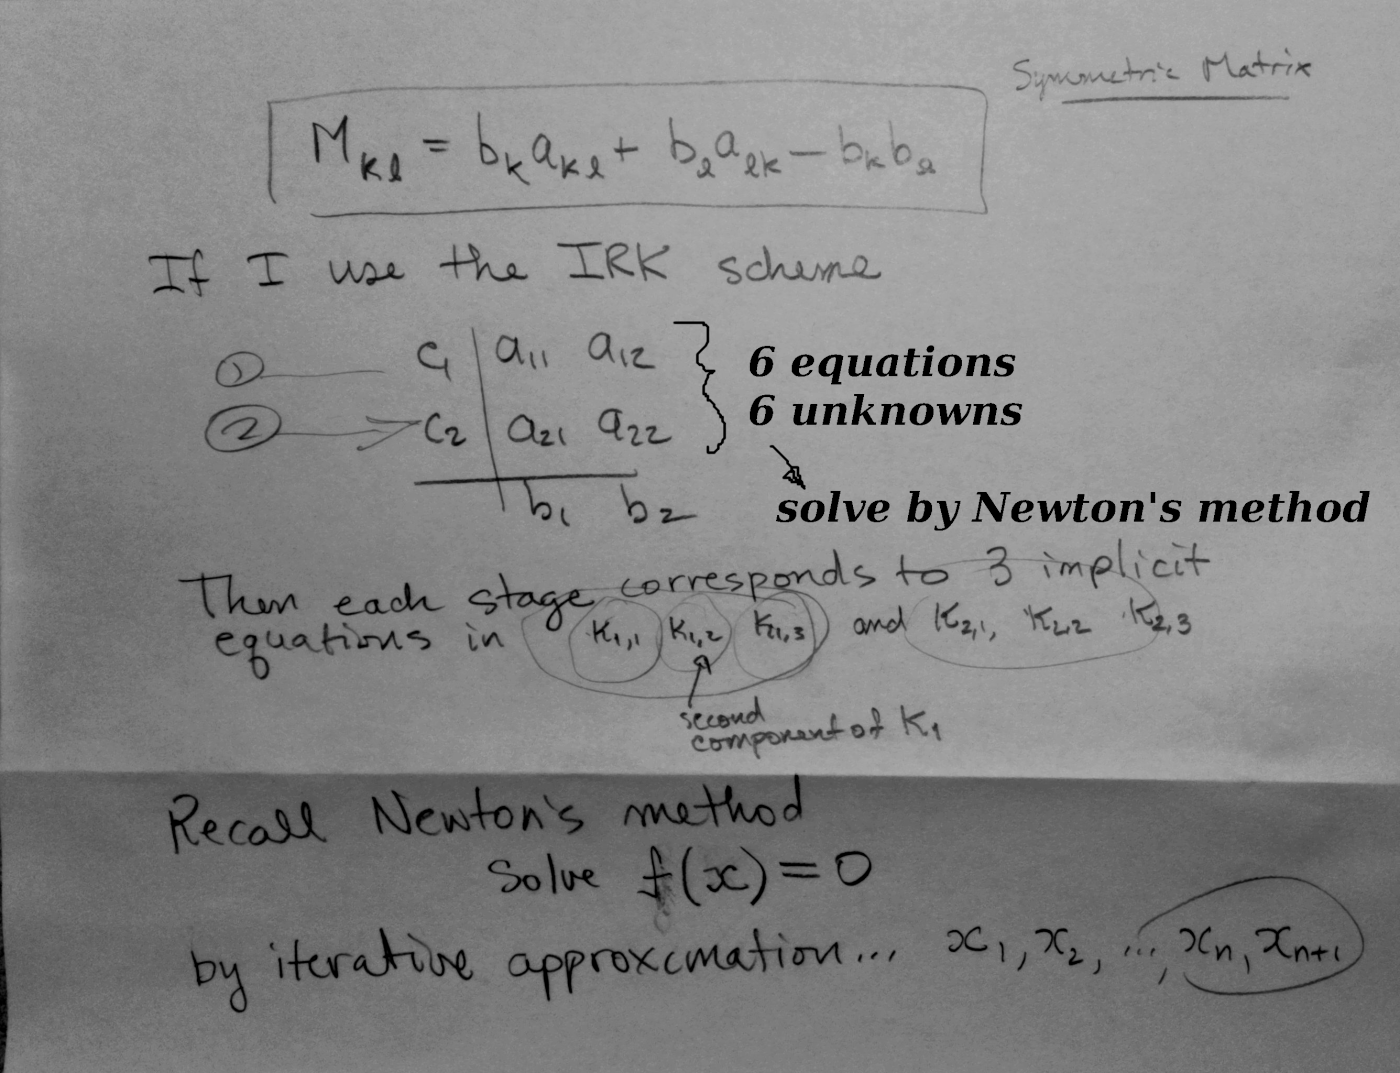 Symmetric Matrix
M_kl = b_k a_kl + b_l a_lk − b_k b_l
If I use the IRK scheme
① c₁ | a₁₁ a₁₂
6 equations
6 unknowns
② c₂ | a₂₁ a₂₂
b₁ b₂
solve by Newton's method
Then each stage corresponds to 3 implicit
equations in K₁,₁ K₁,₂ K₁,₃ and K₂,₁, K₂,₂ K₂,₃
second
component of K₁
Recall Newton's method
Solve f(x) = 0
by iterative approxcmation... x₁, x₂, ..., xₙ, xₙ₊₁